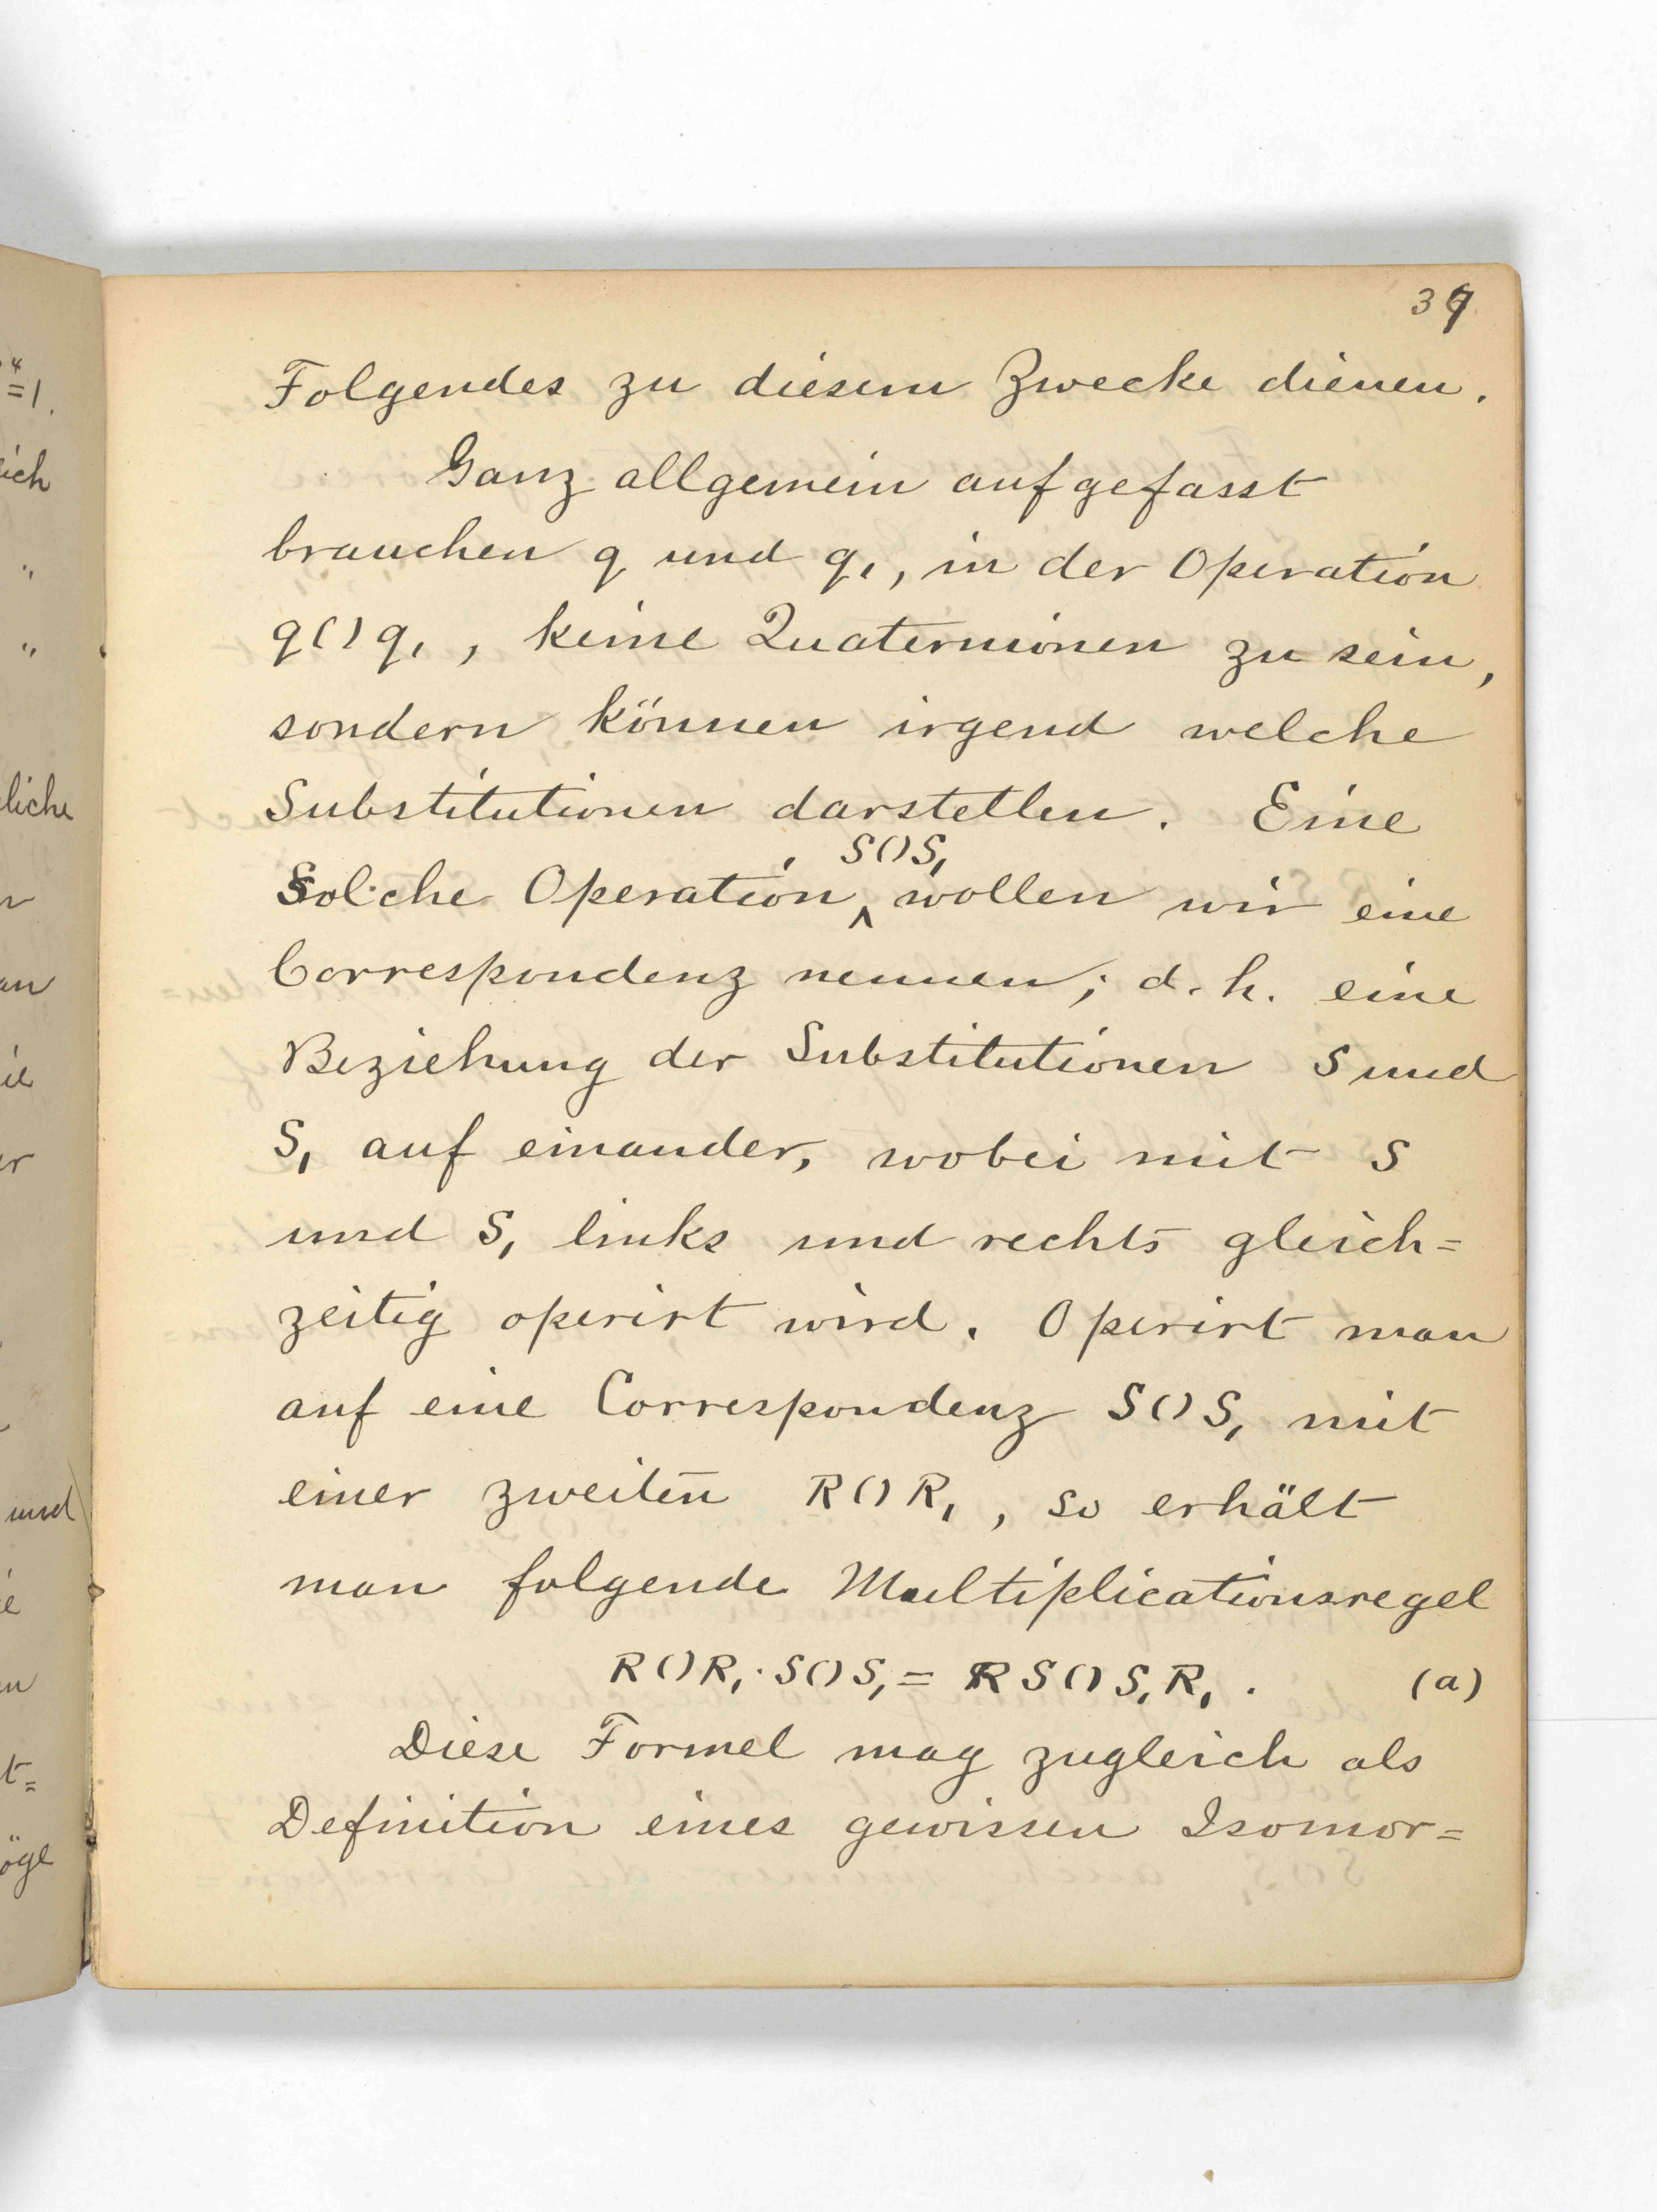 37
Folgendes zu diesem Zwecke dienen.
Ganz allgemein aufgefasst
brauchen q und q₁, in der Operation
q()q₁, keine Quaternionen zu sein,
sondern können irgend welche
Substitutionen darstellen. Eine
S()S₁
Solche Operation ‸ wollen wir eine
Correspondenz nennen; d. h. eine
Beziehung der Substitutionen S und
S₁ auf einander, wobei mit S
und S₁ links und rechts gleich=
zeitig operirt wird. Operirt man
auf eine Correspondenz S()S₁ mit
einer zweiten R()R₁, so erhält
man folgende Multiplicationsregel
R()R₁·S()S₁ = RS()S₁R₁. (a)
Diese Formel mag zugleich als
Definition eines gewissen Isomor=
=1.
ich
"
"
liche
an
er
und
t=
öge